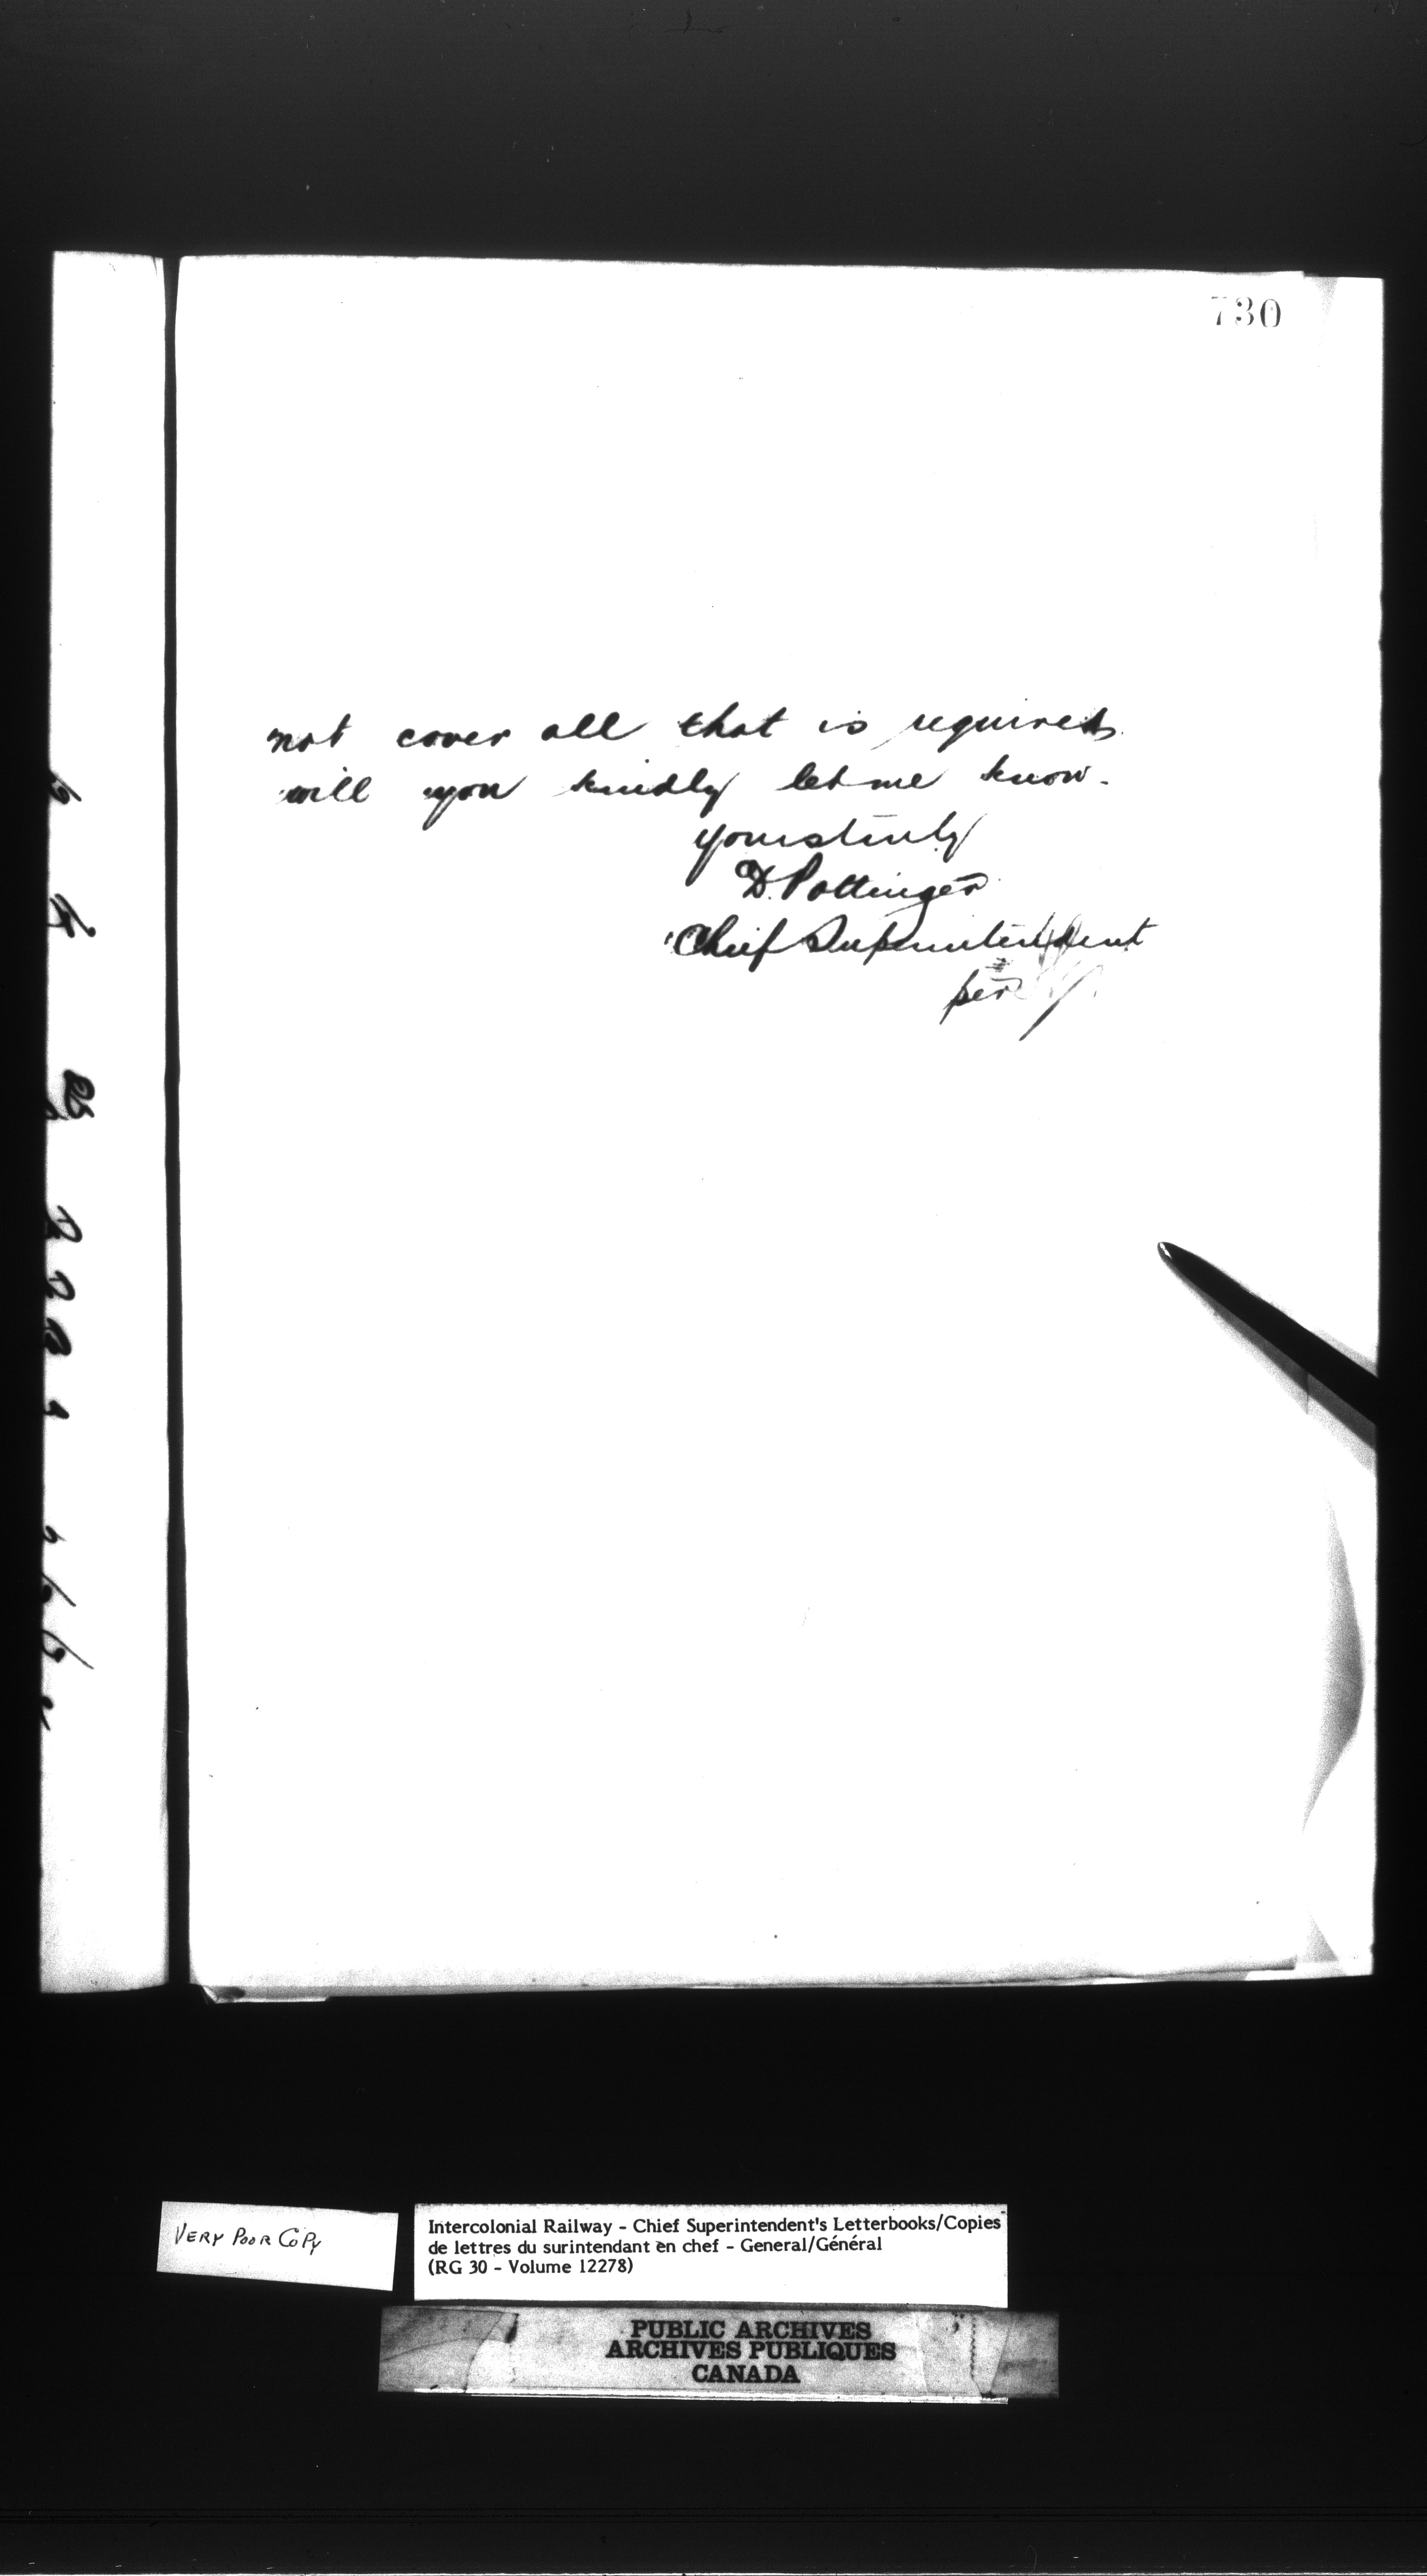 730
not cover all that is required
will you kindly let me know.
yours truly
D. Pottinger
Chief Superintendent
per
VERY POOR COPY
Intercolonial Railway - Chief Superintendent's Letterbooks/Copies
de lettres du surintendant en chef - General/Général
(RG 30 - Volume 12278)
PUBLIC ARCHIVES
ARCHIVES PUBLIQUES
CANADA